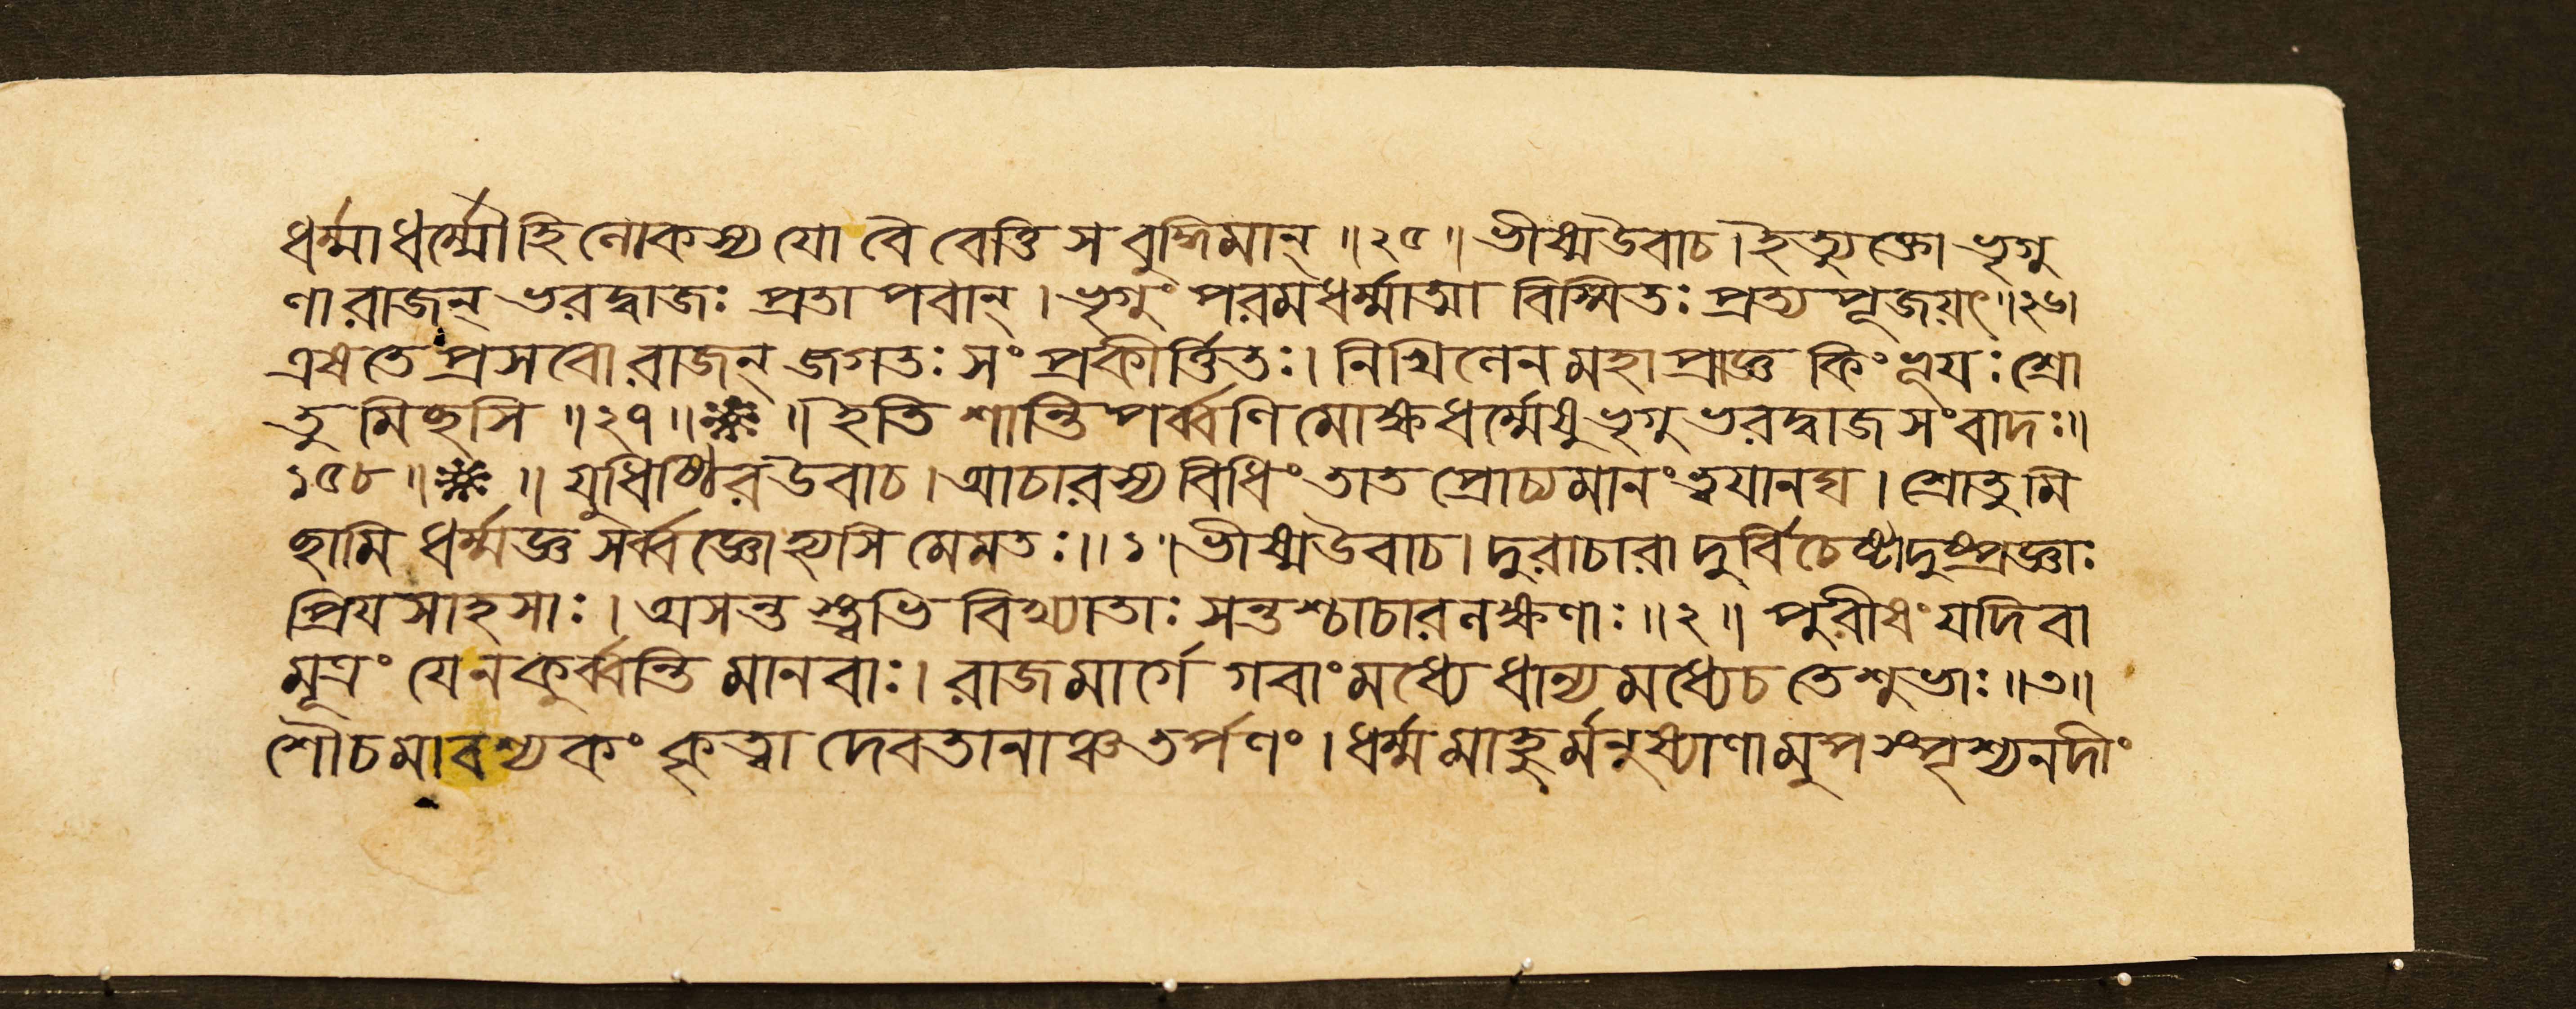 ধর্ম্মাধর্ম্মৌ হি লোকস্য যো বৈ বেত্তি স বুদ্ধিমান্ ॥ ২৫ ॥ ভীষ্ম উবাচ । ইত্যুক্তো ভৃগু
ণা রাজন্ ভরদ্বাজঃ প্রতাপবান্ । ভৃগুং পরমধর্ম্মাত্মা বিস্মিতঃ প্রত্যপূজয়ৎ ॥ ২৬ ।
এষ তে প্রসবো রাজন্ জগতঃ সংপ্রকীর্ত্তিতঃ । নিখিলেন মহাপ্রাজ্ঞ কিং ভূযঃ শ্রো
তুমিছসি ॥ ২৭ ॥ ❋ ॥ ইতি শান্তিপর্ব্বণি মোক্ষধর্ম্মেষু ভৃগুভরদ্বাজসংবাদঃ ॥
১৫৮ ॥ ❋ ॥ যুধিষ্ঠির উবাচ । আচারস্য বিধিং তাত প্রোচ্যমানং ত্বযানঘ । শ্রোতুমি
ছামি ধর্ম্মজ্ঞ সর্ব্বজ্ঞো হ্যসি মে মতঃ ॥ ১ ॥ ভীষ্ম উবাচ । দুরাচারা দুর্বিচেষ্টা দুষ্প্রজ্ঞাঃ
প্রিযসাহসাঃ । অসন্তস্ত্বভিবিখ্যাতাঃ সন্তশ্চাচারলক্ষণাঃ ॥ ২ ॥ পুরীষং যদি বা
মূত্রং যে ন কুর্ব্বন্তি মানবাঃ । রাজমার্গে গবাং মধ্যে ধান্যমধ্যে চ তে শুভাঃ ॥ ৩ ॥
শৌচমাবশ্যকং কৃত্বা দেবতানাঞ্চ তর্পণং । ধর্ম্মমাহুর্মনুষ্যাণামুপস্পৃশ্য নদীং